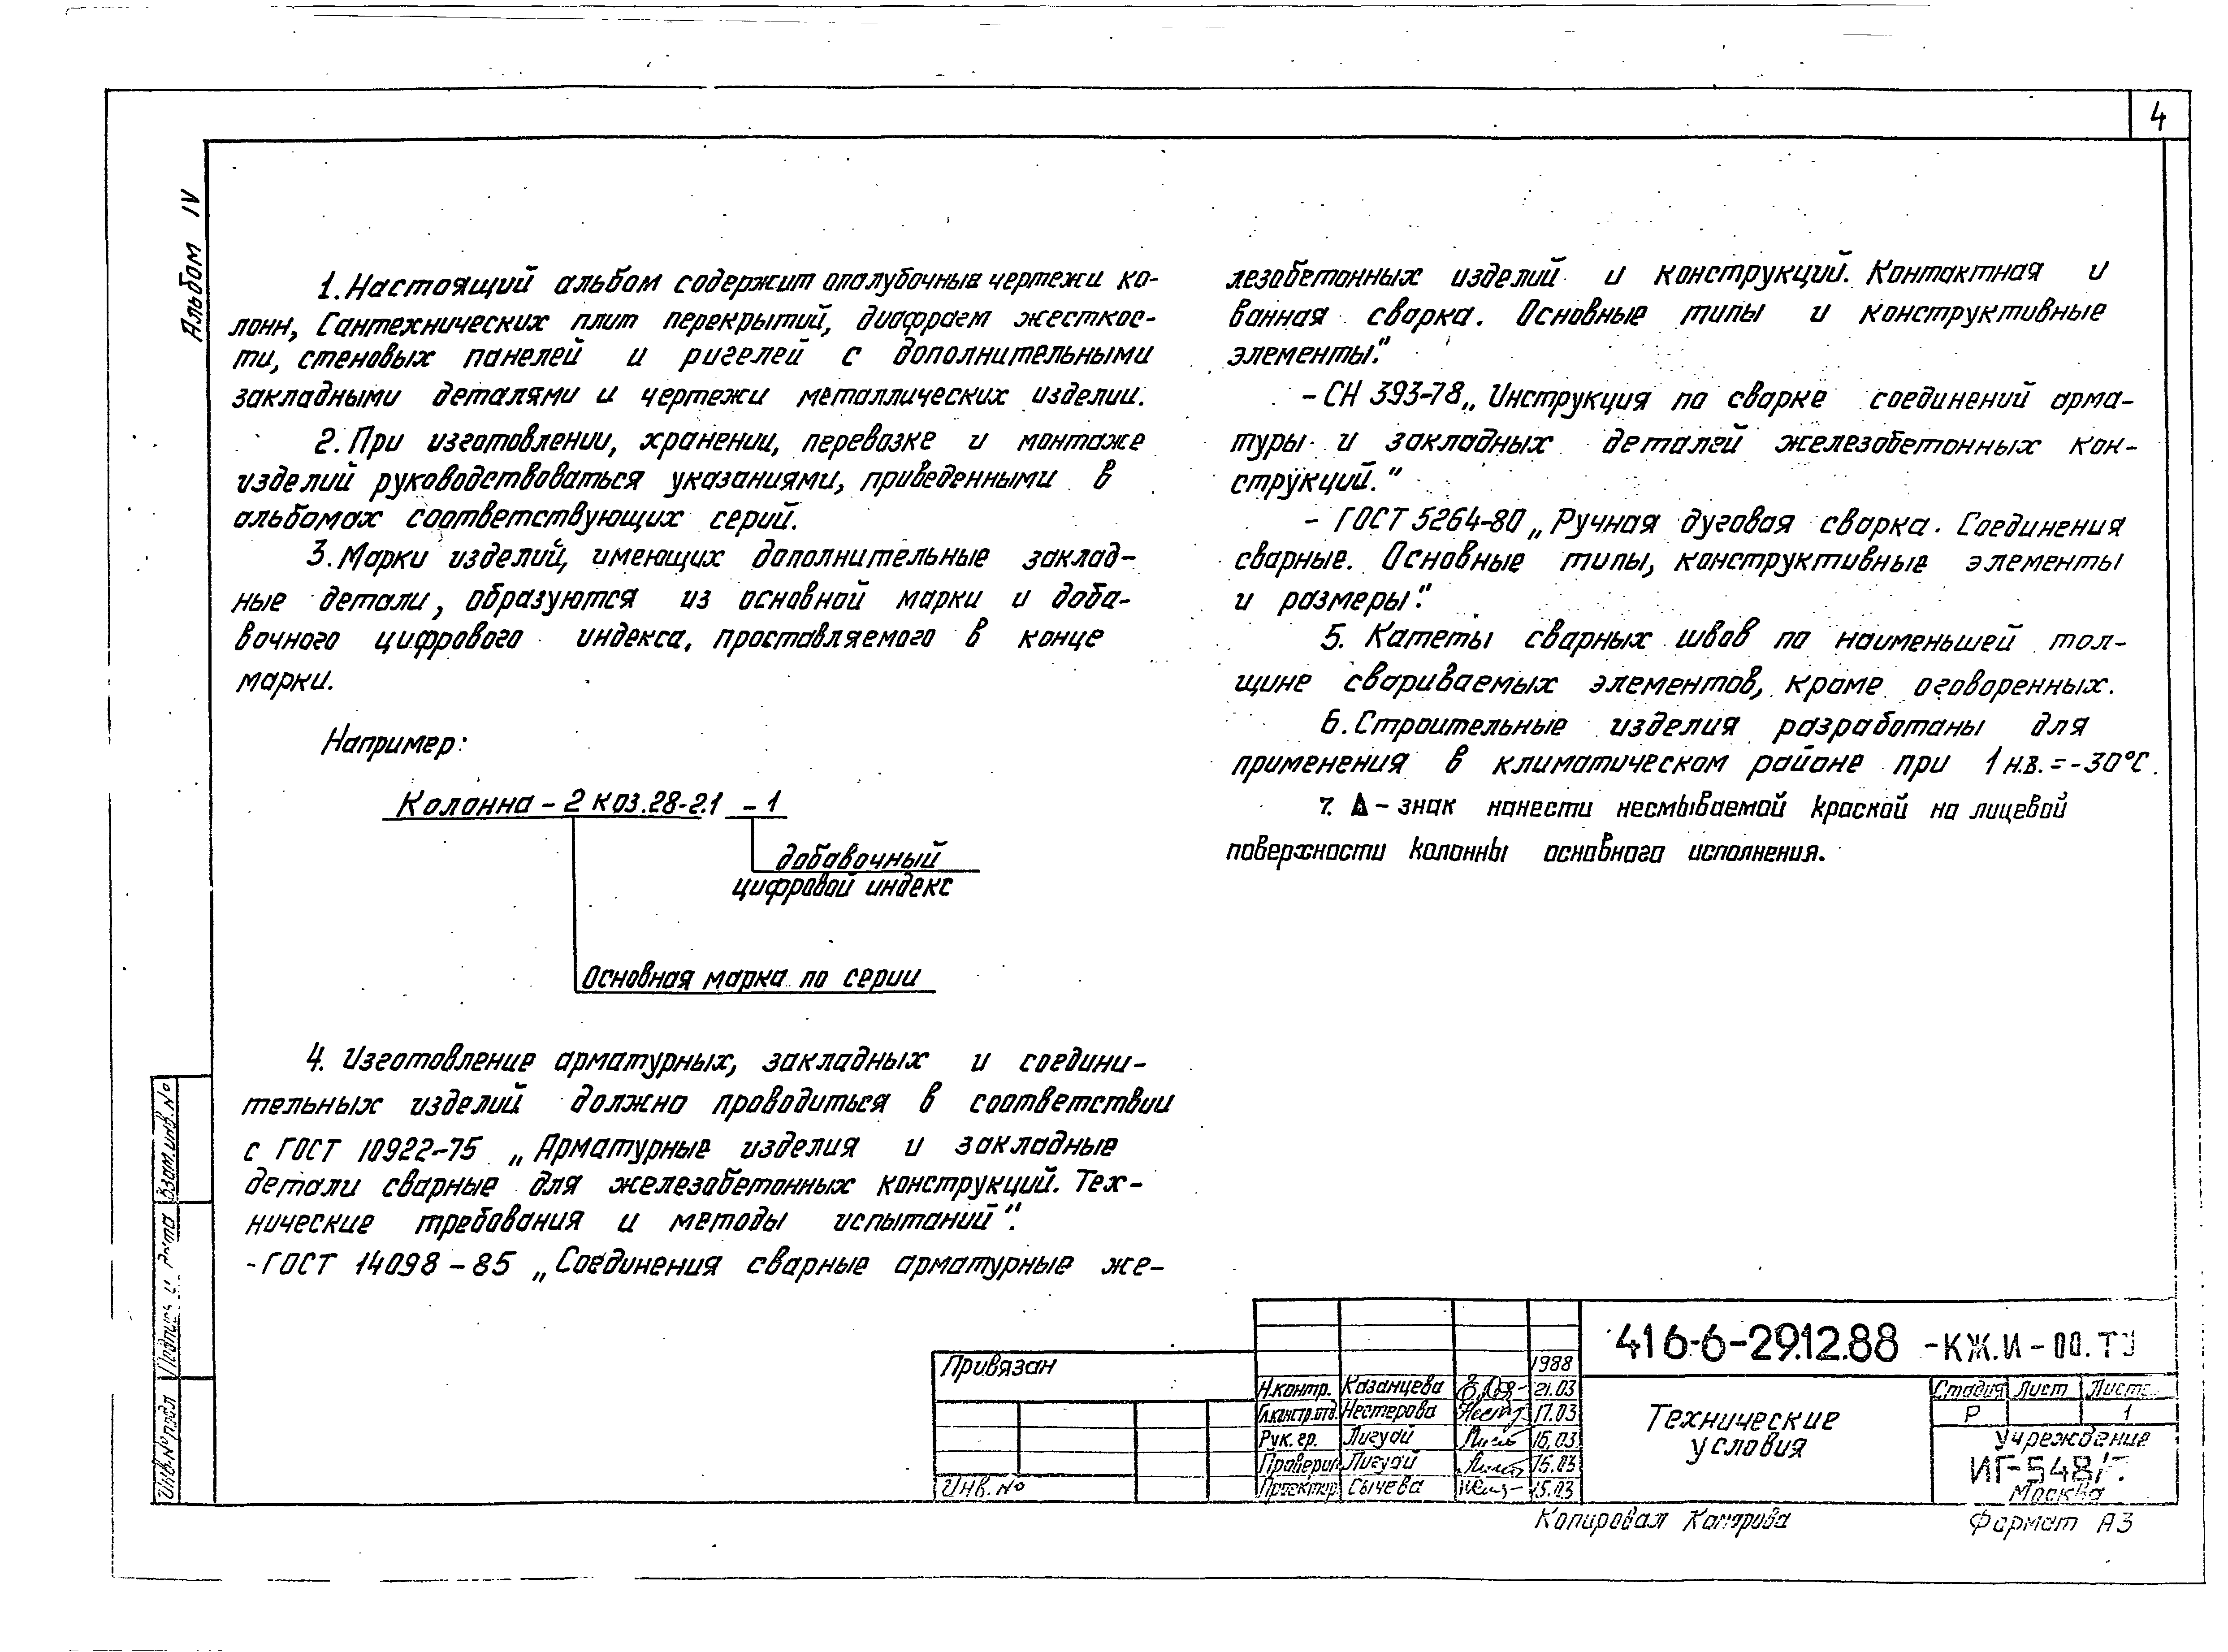 4
Альбом IV
1. Настоящий альбом содержит опалубочные чертежи ко-
лонн, Сантехнических плит перекрытий, диафрагм жесткос-
ти, стеновых панелей и ригелей с дополнительными
закладными деталями и чертежи металлических изделии.
2. При изготовлении, хранении, перевозке и монтаже
изделий руководствоваться указаниями, приведенными в
альбомах соответствующих серий.
3. Марки изделий, имеющих дополнительные заклад-
ные детали, образуются из основной марки и доба-
вочного цифрового индекса, проставляемого в конце
марки.
Например:
Колонна - 2 К03.28-2.1 - 1
добавочный
цифровой индекс
Основная марка по серии
4. Изготовление арматурных, закладных и соедини-
тельных изделий должно проводиться в соответствии
с ГОСТ 10922-75 „Арматурные изделия и закладные
детали сварные для железобетонных конструкций. Тех-
нические требования и методы испытаний".
- ГОСТ 14098-85 „Соединения сварные арматурные же-
лезобетонных изделий и конструкций. Контактная и
ванная сварка. Основные типы и конструктивные
элементы."
- СН 393-78 „Инструкция по сварке соединений арма-
туры и закладных деталей железобетонных кон-
струкций."
- ГОСТ 5264-80 „Ручная дуговая сварка. Соединения
сварные. Основные типы, конструктивные элементы
и размеры".
5. Катеты сварных швов по наименьшей тол-
щине свариваемых элементов, кроме оговоренных.
6. Строительные изделия разработаны для
применения в климатическом районе при tн.в. = -30°С.
7. Δ - знак нанести несмываемой краской на лицевой
поверхности колонны основного исполнения.
Взам. инв. №
Подпись и дата
Инв. № подл
Привязан
Инв. №
1988
Н.контр. Казанцева 21.03
Гл.констр.отд. Нестерова 17.03
Рук. гр. Лигуой 16.03
Проверил Лигуой 15.03
Проектир. Сычева 15.03
416-6-29.12.88 -КЖ.И-00.ТУ
Технические
условия
Стадия Лист Листов
Р 1
Учреждение
ИГ-548/
Москва
Копировал Комарова
Формат А3